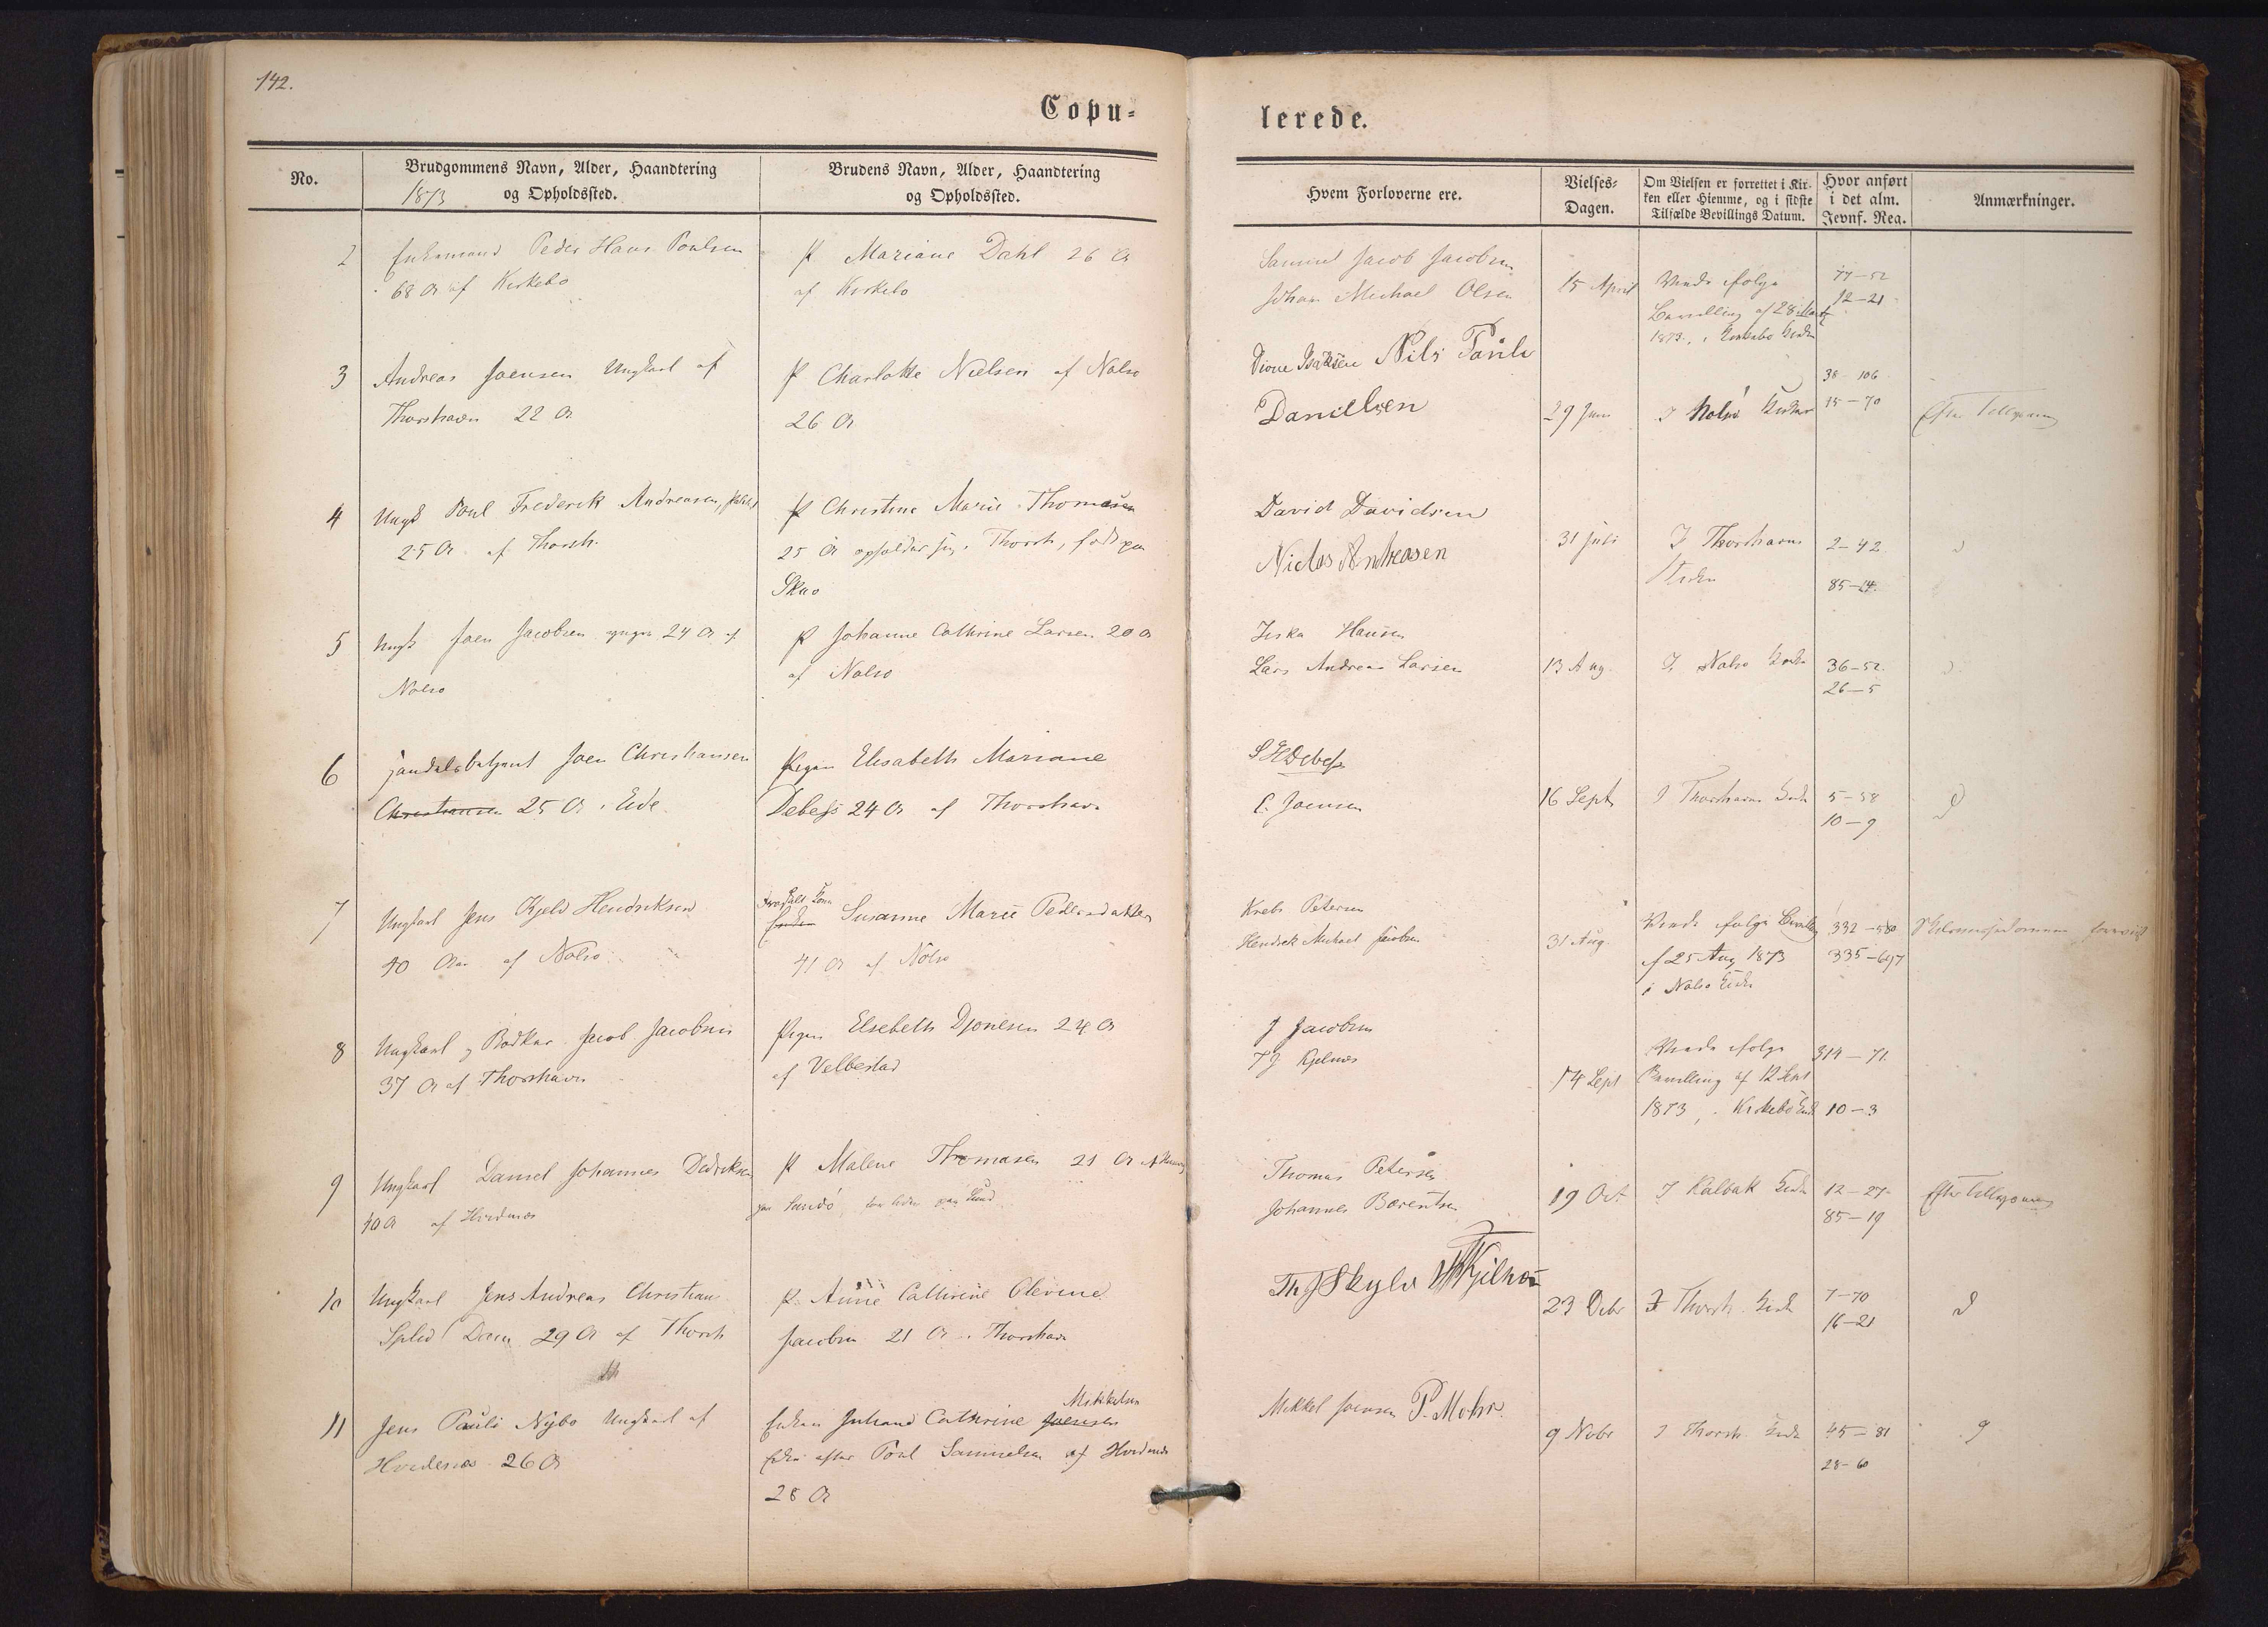 142.
Copu-
lerede.
No.
Brudgommens Navn, Alder, Haandtering
og Opholdssted.
1873
Brudens Navn, Alder, Haandtering
og Opholdssted.
Hvem Forloverne ere.
Vielses-
Dagen.
Om Vielsen er forrettet i Kir-
ken eller Hiemme, og i sidste
Tilfælde Bevillings Datum.
Hvor anført
i det alm.
Jevnf. Reg.
Anmærkninger.
2
Enkemand Peder Hans Poulsen
68 Ar af Kirkebø
P Mariane Dahl 26 Ar
af Kirkebø
Samuel Jacob Jacobsen
Johan Michael Olsen
15 April
ifølge
Bevilling af 28 Marts
1873, i Kirkebø Kirke
77-52
12-21
3
Andreas Joensen Ungkarl af
Thorshavn 22 Ar
P Charlotte Nielsen af Nolsø
26 Ar
Nils Pauli
Danielsen
29 Juni
I Nolsø Kirke
38-106
15-70
Efter Tillysning
4
Ungk Poul Frederik Andreasen,
25 Ar af Thorsh.
P Christine Marie Thomasen
25 Ar opholder sig i Thorsh, født paa
Skuø
David Davidsen
Niclas Andreasen
31 Juli
I Thorshavns
Kirke
2-42
85-14
5
Ungk Joen Jacobsen yngre 24 Ar af
Nolsø
P Johanne Cathrine Larsen 20 Ar
af Nolsø
Hansen
Lars Andreas Larsen
13 Aug.
I Nolsø Kirke
36-52
26-5
6
Handelsbetjent Joen Christiansen
Christiansen 25 Ar i Eide
Pigen Elisabeth Mariane
Debess 24 Ar af Thorshavn
Debess
C. Joensen
16 Sept
I Thorshavns Kirke
5-58
10-9
7
Ungkarl Jens Kjeld Hendriksen
40 Aar af Nolsø
Fraskilt Kone
Susanne Marie Pedersdatter
41 Ar af Nolsø
Krebs Petersen
Hendrik Michael Jacobsen
31 Aug.
ifølge Bevilling
af 25 Aug 1873
i Nolsø Kirke
332-580
335-647
8
Ungkarl og Bødker Jacob Jacobsen
37 Ar af Thorshavn
Pigen Elsebeth Djonesen 24 Ar
af Velbestad
J Jacobsen
14 Sept
ifølge
Bevilling af 12 Sept
1873, i Kirkebø Kirke
314-71
10-3
9
Ungkarl Daniel Johannes Dedriksen
40 Ar af Hvidenæs
P Malene Thomasen 21 Ar
paa Sandø,
Thomas Petersen
Johannes Bærentsen
19 Oct
I Kalbak Kirke
12-27
85-19
Efter Tillysning
10
Ungkarl Jens Andreas Christian
Splid Dam 29 Ar af Thorsh
P. Anne Cathrine Olevine
Jacobsen 21 Ar i Thorshavn
23 Debr
I Thorsh. Kirke
7-70
16-21
11
Jens Pauli Nybo Ungkarl af
Hvidenæs 26 Ar
Mikkelsen
Enken Juliane Cathrine Joensen
Enke efter Poul Samuelsen af Hvidenæs
28 Ar
Mikkel Joensen P. Mohr.
9 Nobr
I Thorsh. Kirke
45-81
28-60